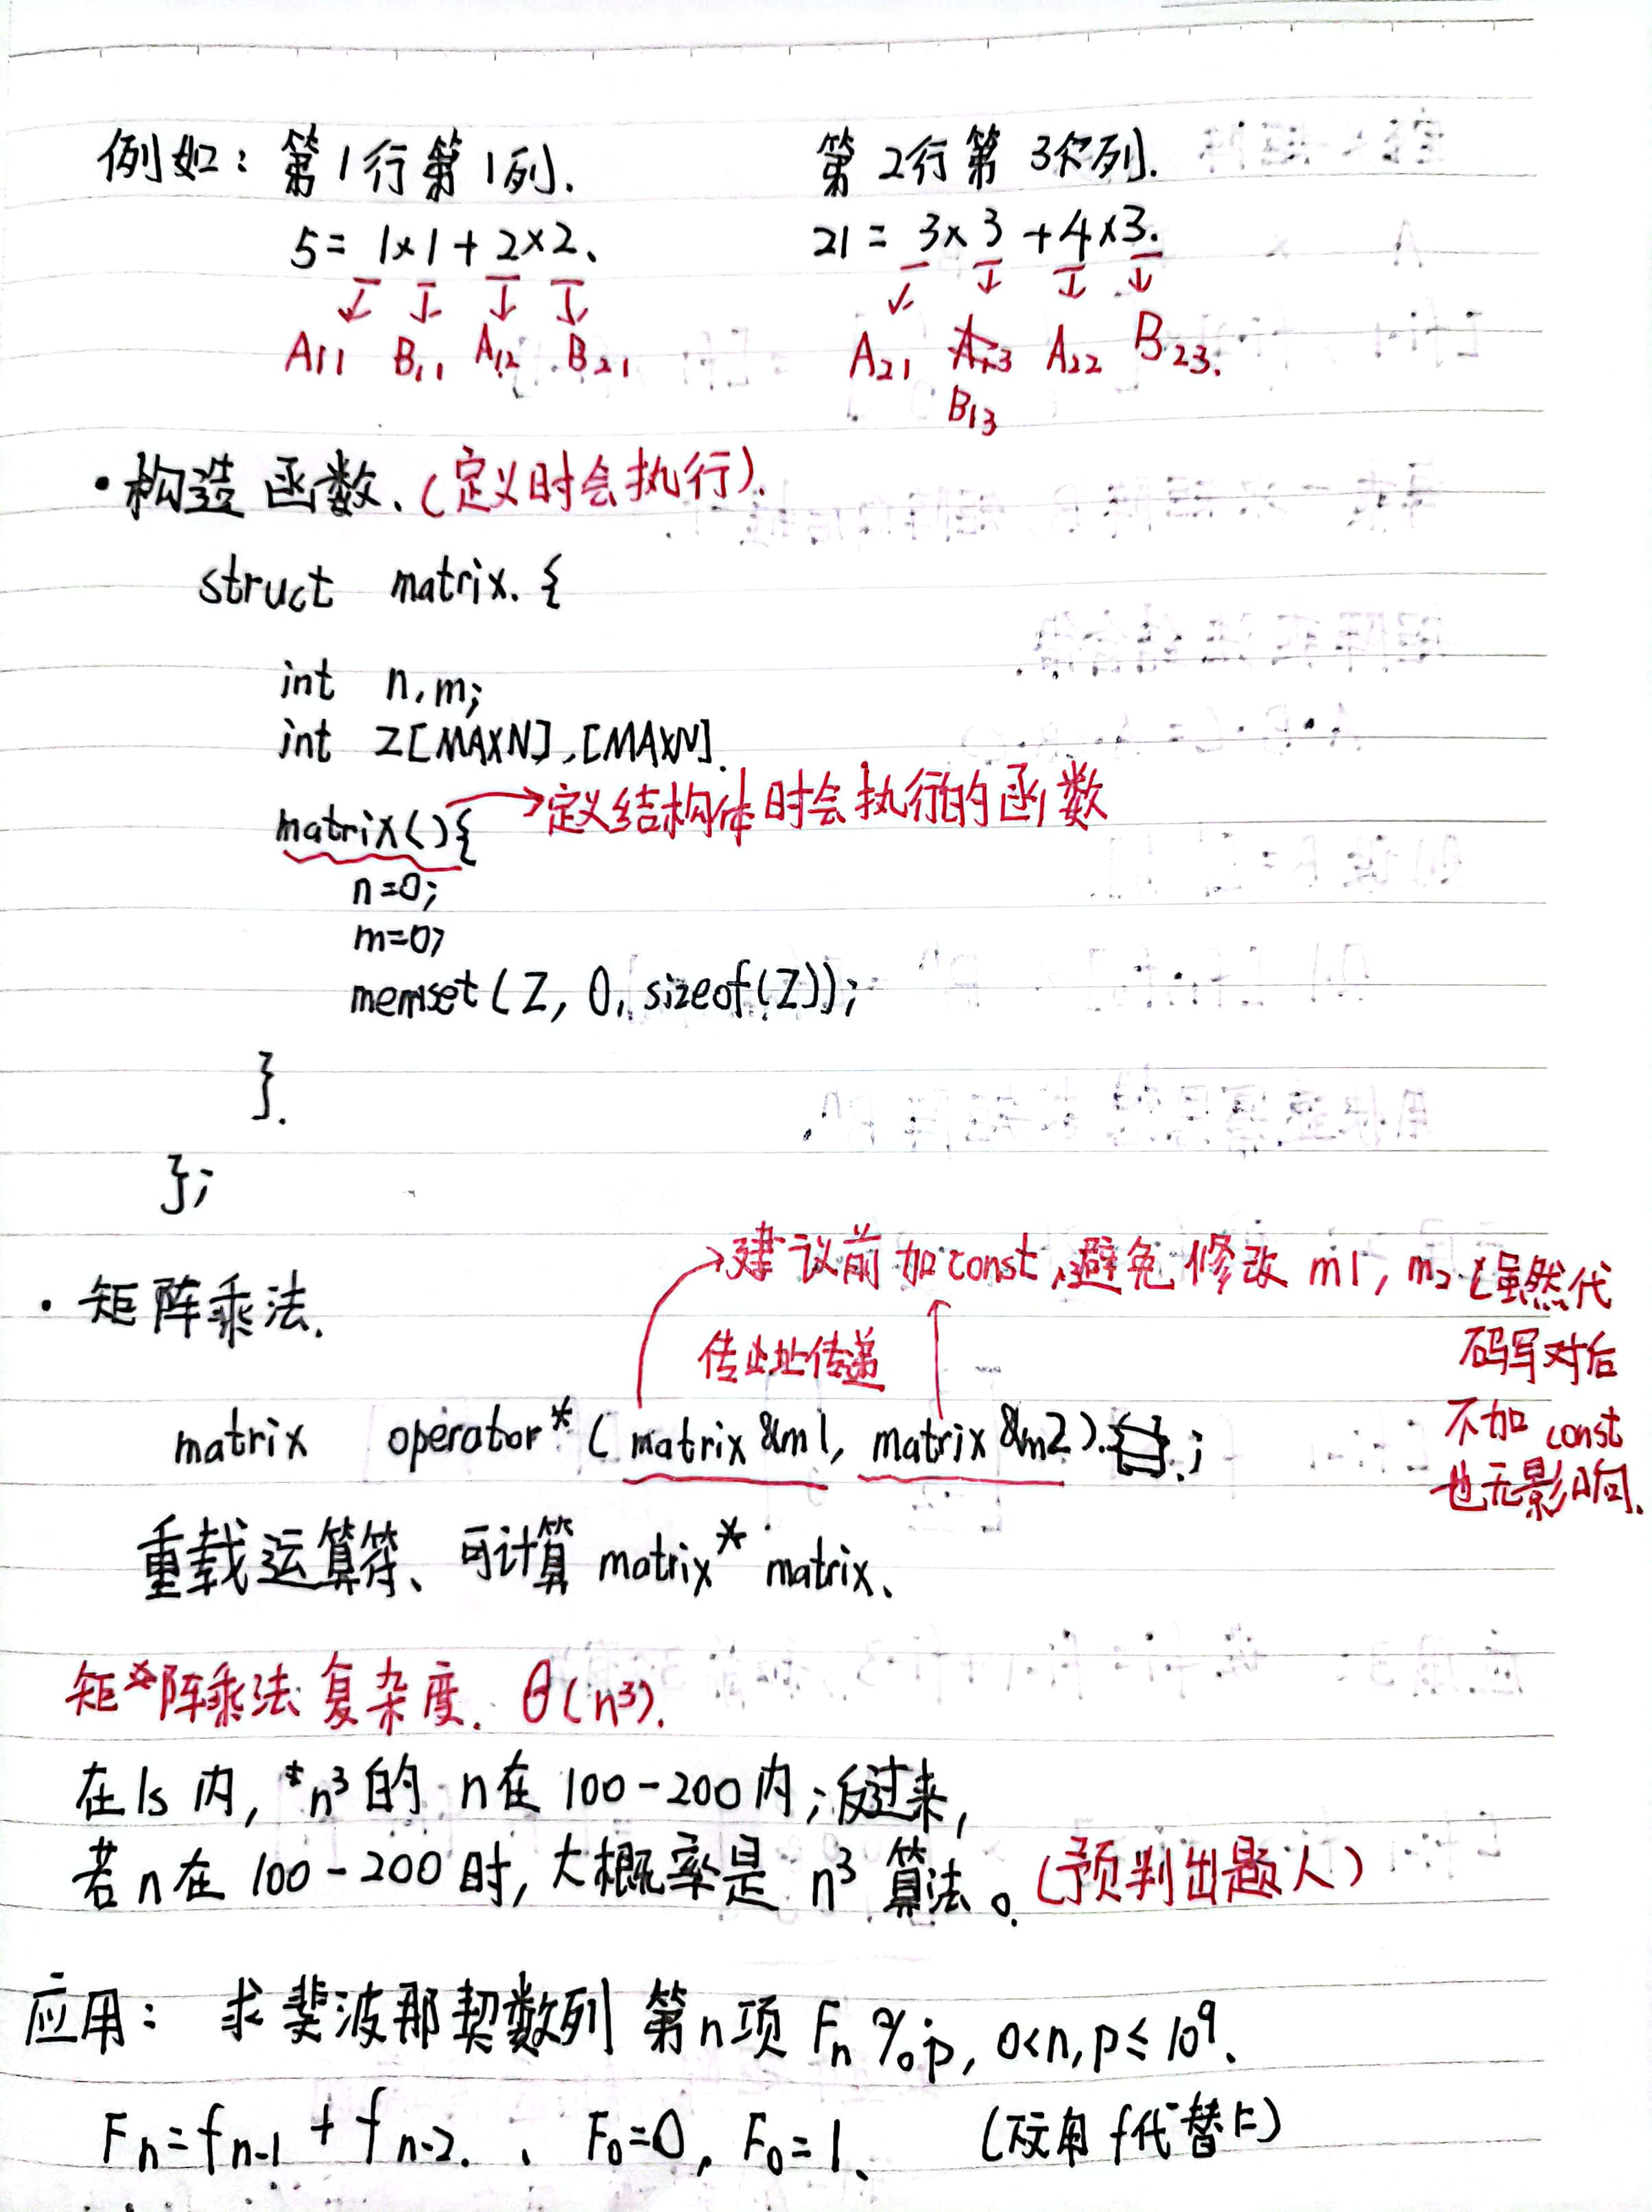 例如：第1行第1列.
第2行第3列.
5= 1×1+2×2、
21= 3×3+4×3.
A11 B11 A12 B21
A21 A22 B23.
B13
·构造函数、(定义时会执行).
struct matrix. {
int n,m;
int Z[MAXN],[MAXN].
matrix(){ →定义结构体时会执行的函数
n=0;
m=0;
memset(Z, 0, sizeof(Z));
}.
};
→建议前加const,避免修改m1, m2 (虽然代
码写对后
不加const
也无影响.
·矩阵乘法.
传址传递
matrix operator*(matrix &m1, matrix &m2).;
重载运算符、可计算 matrix * matrix、
矩阵乘法复杂度. θ(n³).
在1s内, n³的 n在 100-200内;反过来,
若n在 100-200时, 大概率是 n³ 算法。(预判出题人)
应用: 求斐波那契数列 第n项 Fn %p, 0<n,p≤10⁹、
Fn=fn-1+fn-2. 、 F0=0, F0=1、 (用f代替F)